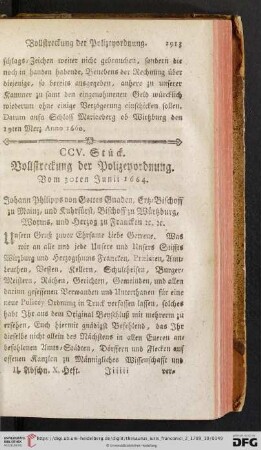 Vollstreckung der Polizeyordnung. 1913
schlags-Zeichen weiter nicht gebrauchen, sondern die
noch in handen habende, Benebens der Rechnung über
diejenige, so bereits ausgegeben, anhero zu unserer
Kammer zu samt den eingenommenen Geld würcklich
wiederum ohne einige Verzögerung einschicken sollen.
Datum aufn Schloß Marieberg ob Würtzburg den
19ten Merz Anno 1660.
CCV. Stück.
Vollstreckung der Polizeyordnung.
Vom 30ten Junii 1664.
Johann Philipps von Gottes Gnaden, Ertz-Bischoff
zu Maintz, und Kuhrfürst, Bischoff zu Würtzburg,
Worms, und Hertzog zu Francken ꝛc. ꝛc.
Unsern Gruß zuvor Ehrsame Liebe Getreue. Was
wir an alle und jede Unsere und Unsers Stiffts
Würtzburg und Hertzogthums Francken, Prälaten, Amt-
leuthen, Vesten, Kellern, Schultheisen, Burger-
Meistern, Räthen, Gerichten, Gemeinden, und allen
darinn gesessenen Verwanden und Unterthanen für eine
neue Policey-Ordnung in Truck verfassen lassen, solches
habt Ihr aus dem Original Beyschluß mit mehrern zu
ersehen, Euch hiermit gnädigst Befehlend, das Ihr
dieselbe nicht allein des Nächstens in allen Eueren an-
befohlenen Amts-Städten, Dörffern und Flecken auf
offenen Kanzlen zu Männigliches Wissenschafft und
II. Abschn. X. Heft. Jiiiii ver-
DFG